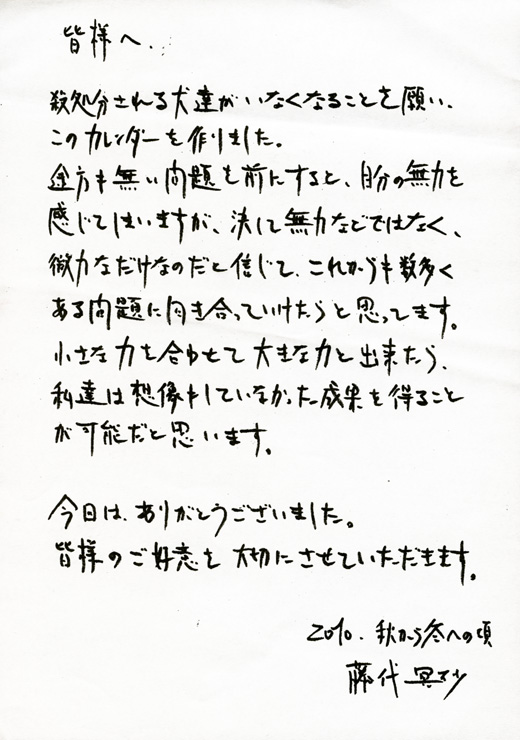 皆様へ.
殺処分される犬達がいなくなることを願い、
このカレンダーを作りました。
途方も無い問題を前にすると、自分の無力を
感じてしまいますが、決して無力などではなく、
微力なだけなのだと信じて、これからも数多く
ある問題に向き合っていけたらと思ってます。
小さな力を合わせて大きな力と出来たら、
私達は想像もしていなかった成果を得ること
が可能だと思います。
今日は、ありがとうございました。
皆様のご好意を大切にさせていただきます。
2010. 秋から冬への頃
藤代冥砂